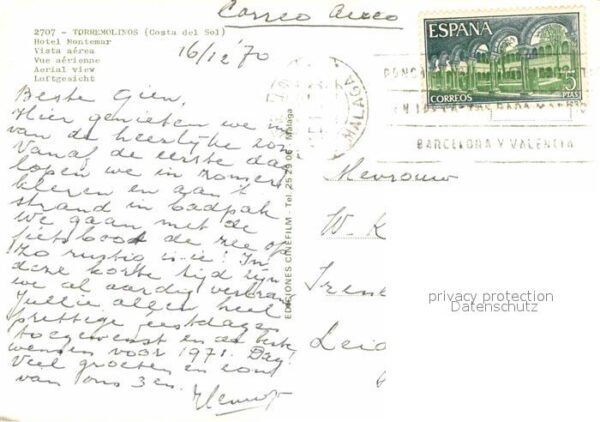 Correo Aereo
2707 - TORREMOLINOS (Costa del Sol)
Hotel Montemar
Vista aérea
Vue aérienne
Aerial view
Luftgesicht
16/12 '70
ESPAÑA
CORREOS
5 PTAS
MALAGA
BARCELONA Y VALENCIA
Beste Gien,
Hier genieten we nu
van de heerlijke zon.
Vanaf de eerste dag
lopen we in zomerse
kleren en aan 't
strand in badpak
We gaan met de
fietsboot de zee op
zo rustig is-ie! In
deze korte tijd zijn
we al aardig verbrand
Jullie allen heel
prettige feestdagen
toegewenst en de beste
wensen voor 1971. Dag!
Veel groeten en
van ons 3en.
EDICIONES CINEFILM - Tel. 25 29 06 - Malaga
Mevrouw
W. K
Irene
Leid
privacy protection
Datenschutz